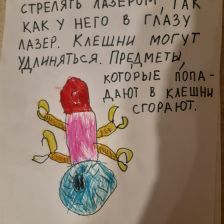 СТРЕЛЯТЬ ЛАЗЕРОМ, ТАК
КАК У НЕГО В ГЛАЗУ
ЛАЗЕР. КЛЕШНИ МОГУТ
УДЛИНЯТЬСЯ. ПРЕДМЕТЫ,
КОТОРЫЕ ПОПА-
ДАЮТ В КЛЕШНИ
СГОРАЮТ.